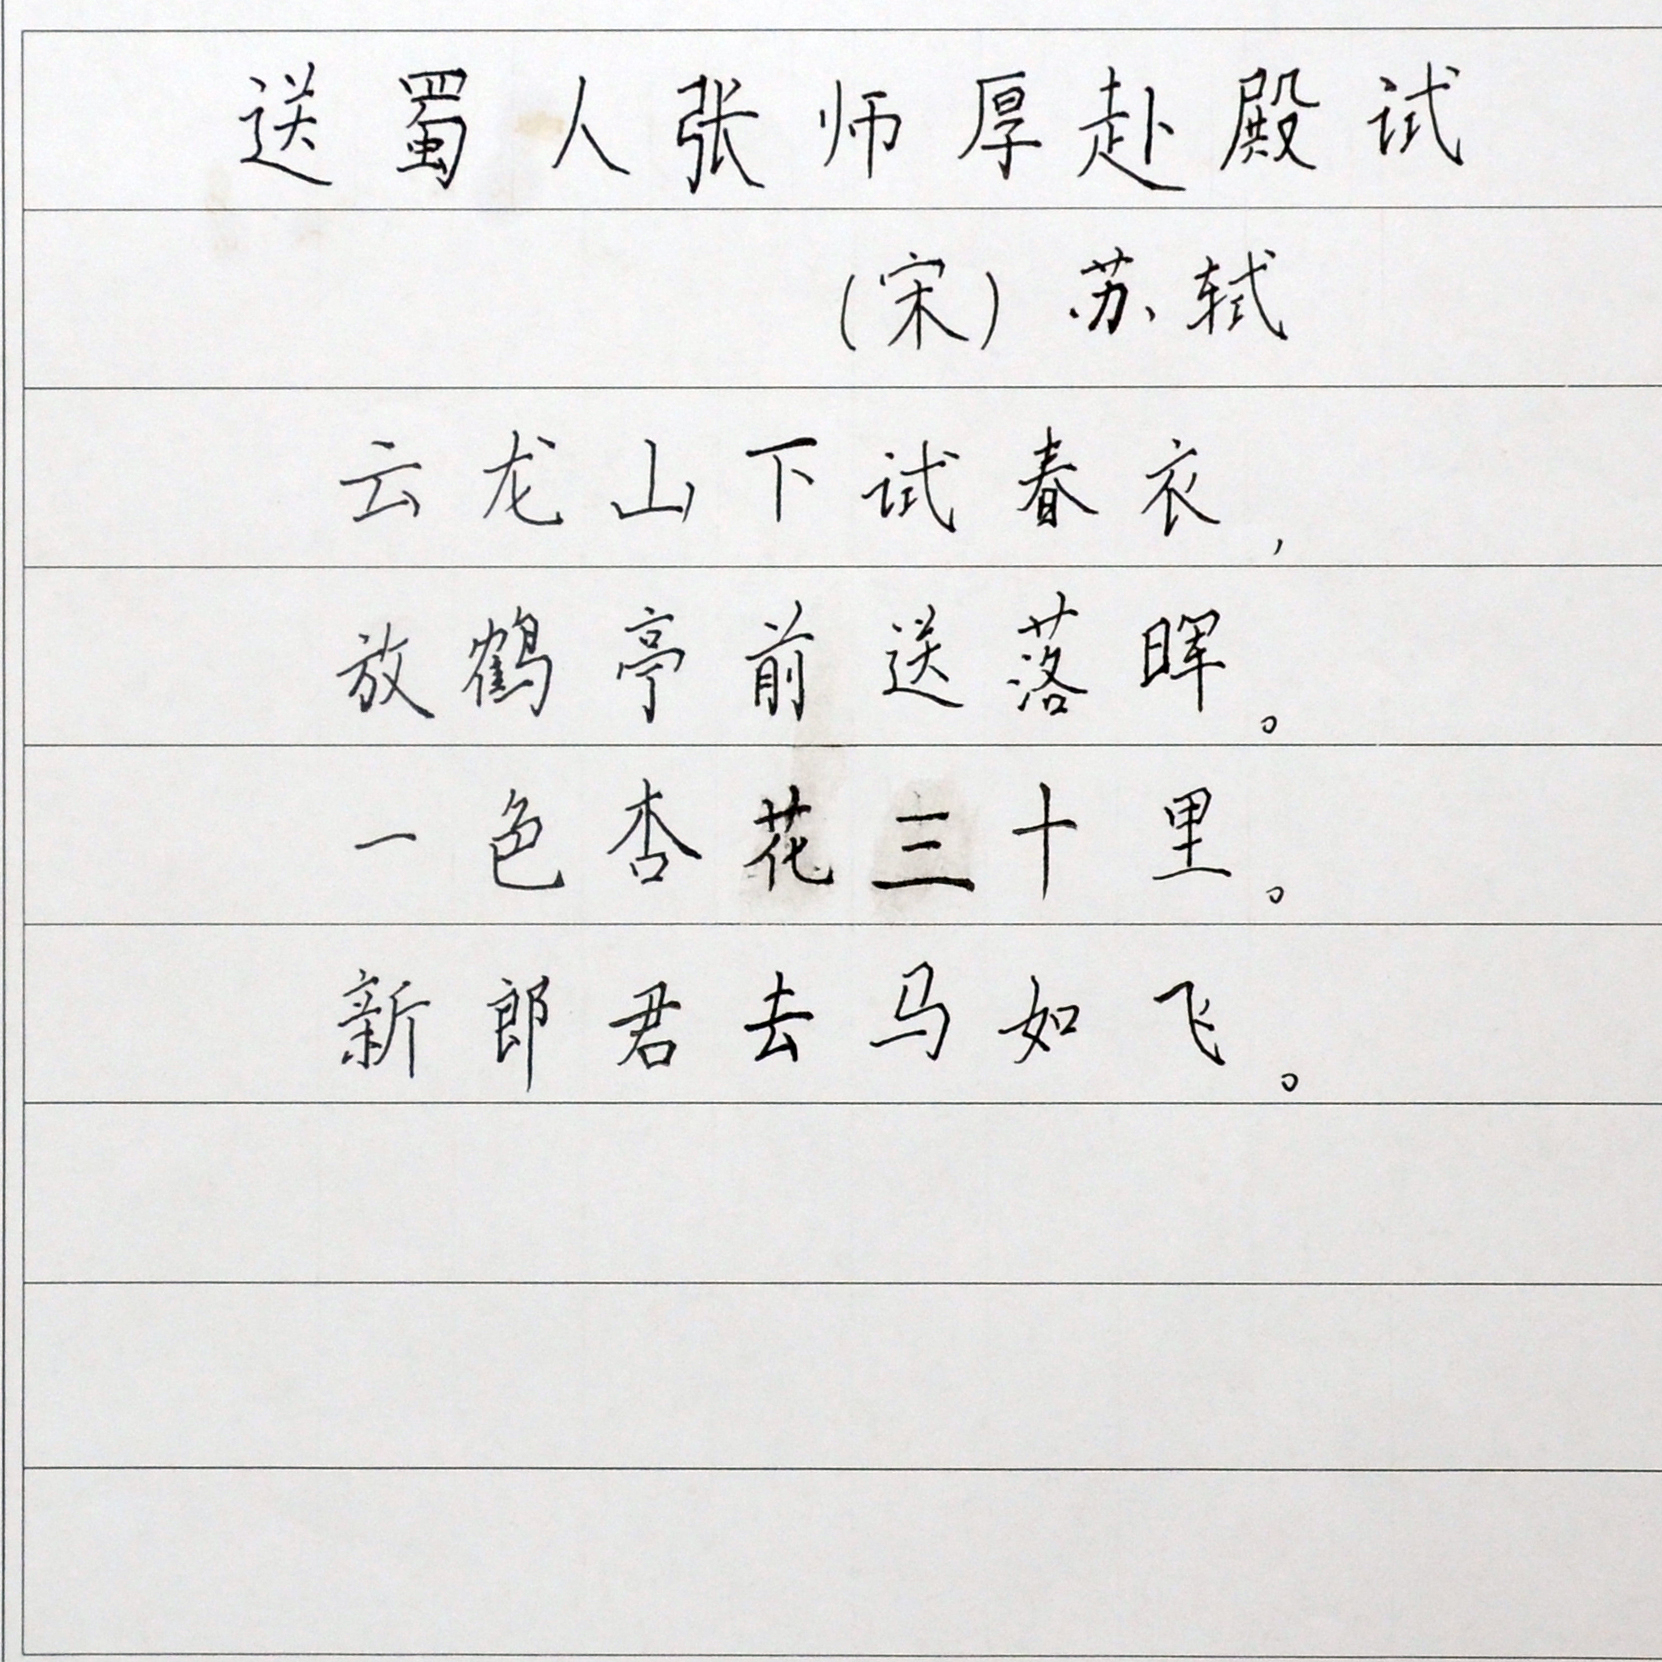 送蜀人张师厚赴殿试
(宋)苏轼
云龙山下试春衣,
放鹤亭前送落晖。
一色杏花三十里。
新郎君去马如飞。